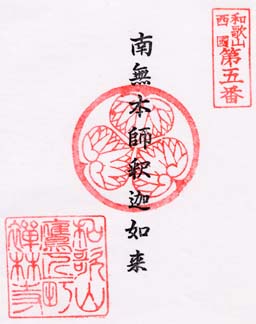 和歌山
西國
第五番
南無本師釈迦如来
和歌山
鷹匠町
禅林寺